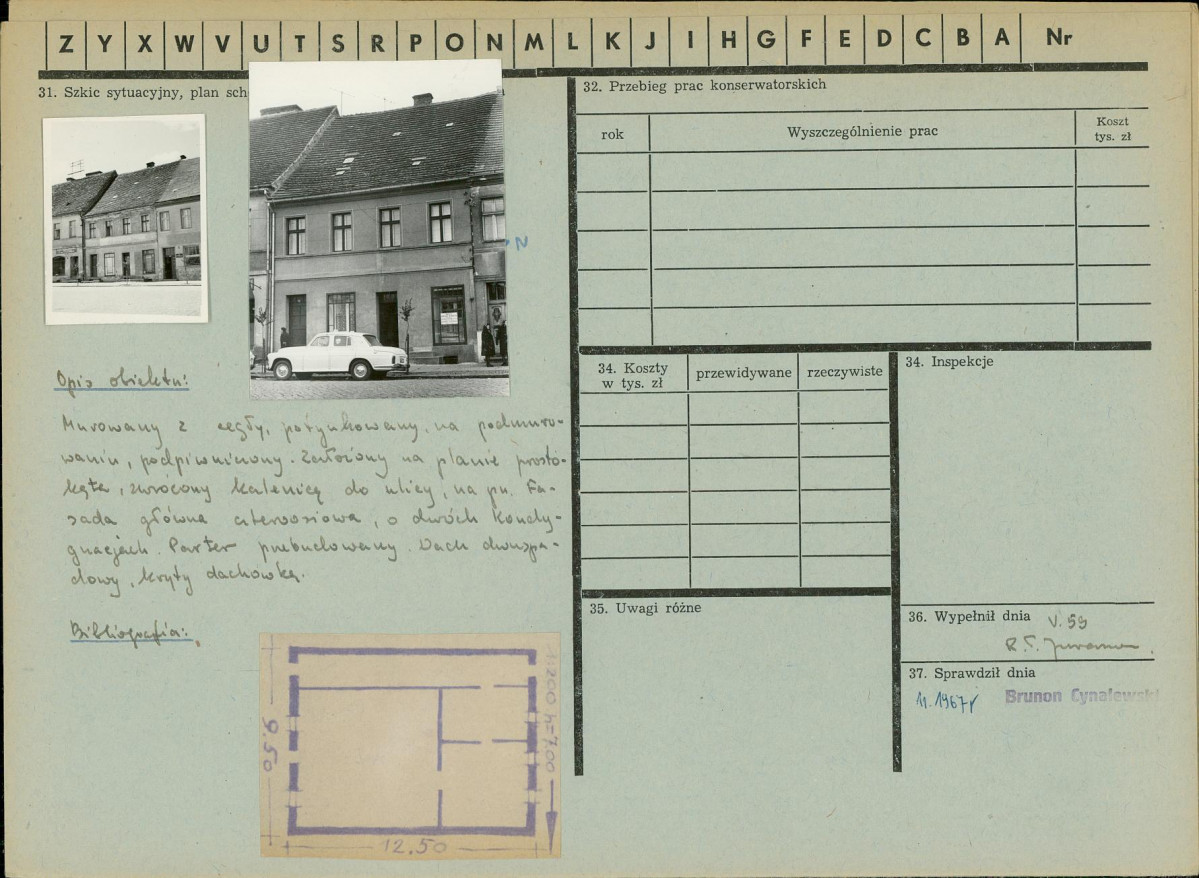 Z Y X W V U T S R P O N M L K J I H G F E D C B A Nr
31. Szkic sytuacyjny, plan sch
N
Opis obiektu:
Murowany z cegły, potynkowany, na podmuro-
waniu, podpiwniczony. Założony na planie prosto-
kąta, zwrócony kalenicą do ulicy, na pn. Fa-
sada główna czteroosiowa, o dwóch kondy-
gnacjach. Parter przebudowany. Dach dwuspa-
dowy, kryty dachówką.
Bibliografia:
9.50
12.50
1:200 h=7,00
32. Przebieg prac konserwatorskich
rok
Wyszczególnienie prac
Koszt
tys. zł
34. Koszty
w tys. zł
przewidywane
rzeczywiste
34. Inspekcje
35. Uwagi różne
36. Wypełnił dnia V. 59
37. Sprawdził dnia
11. 1967r Brunon Cynalewski